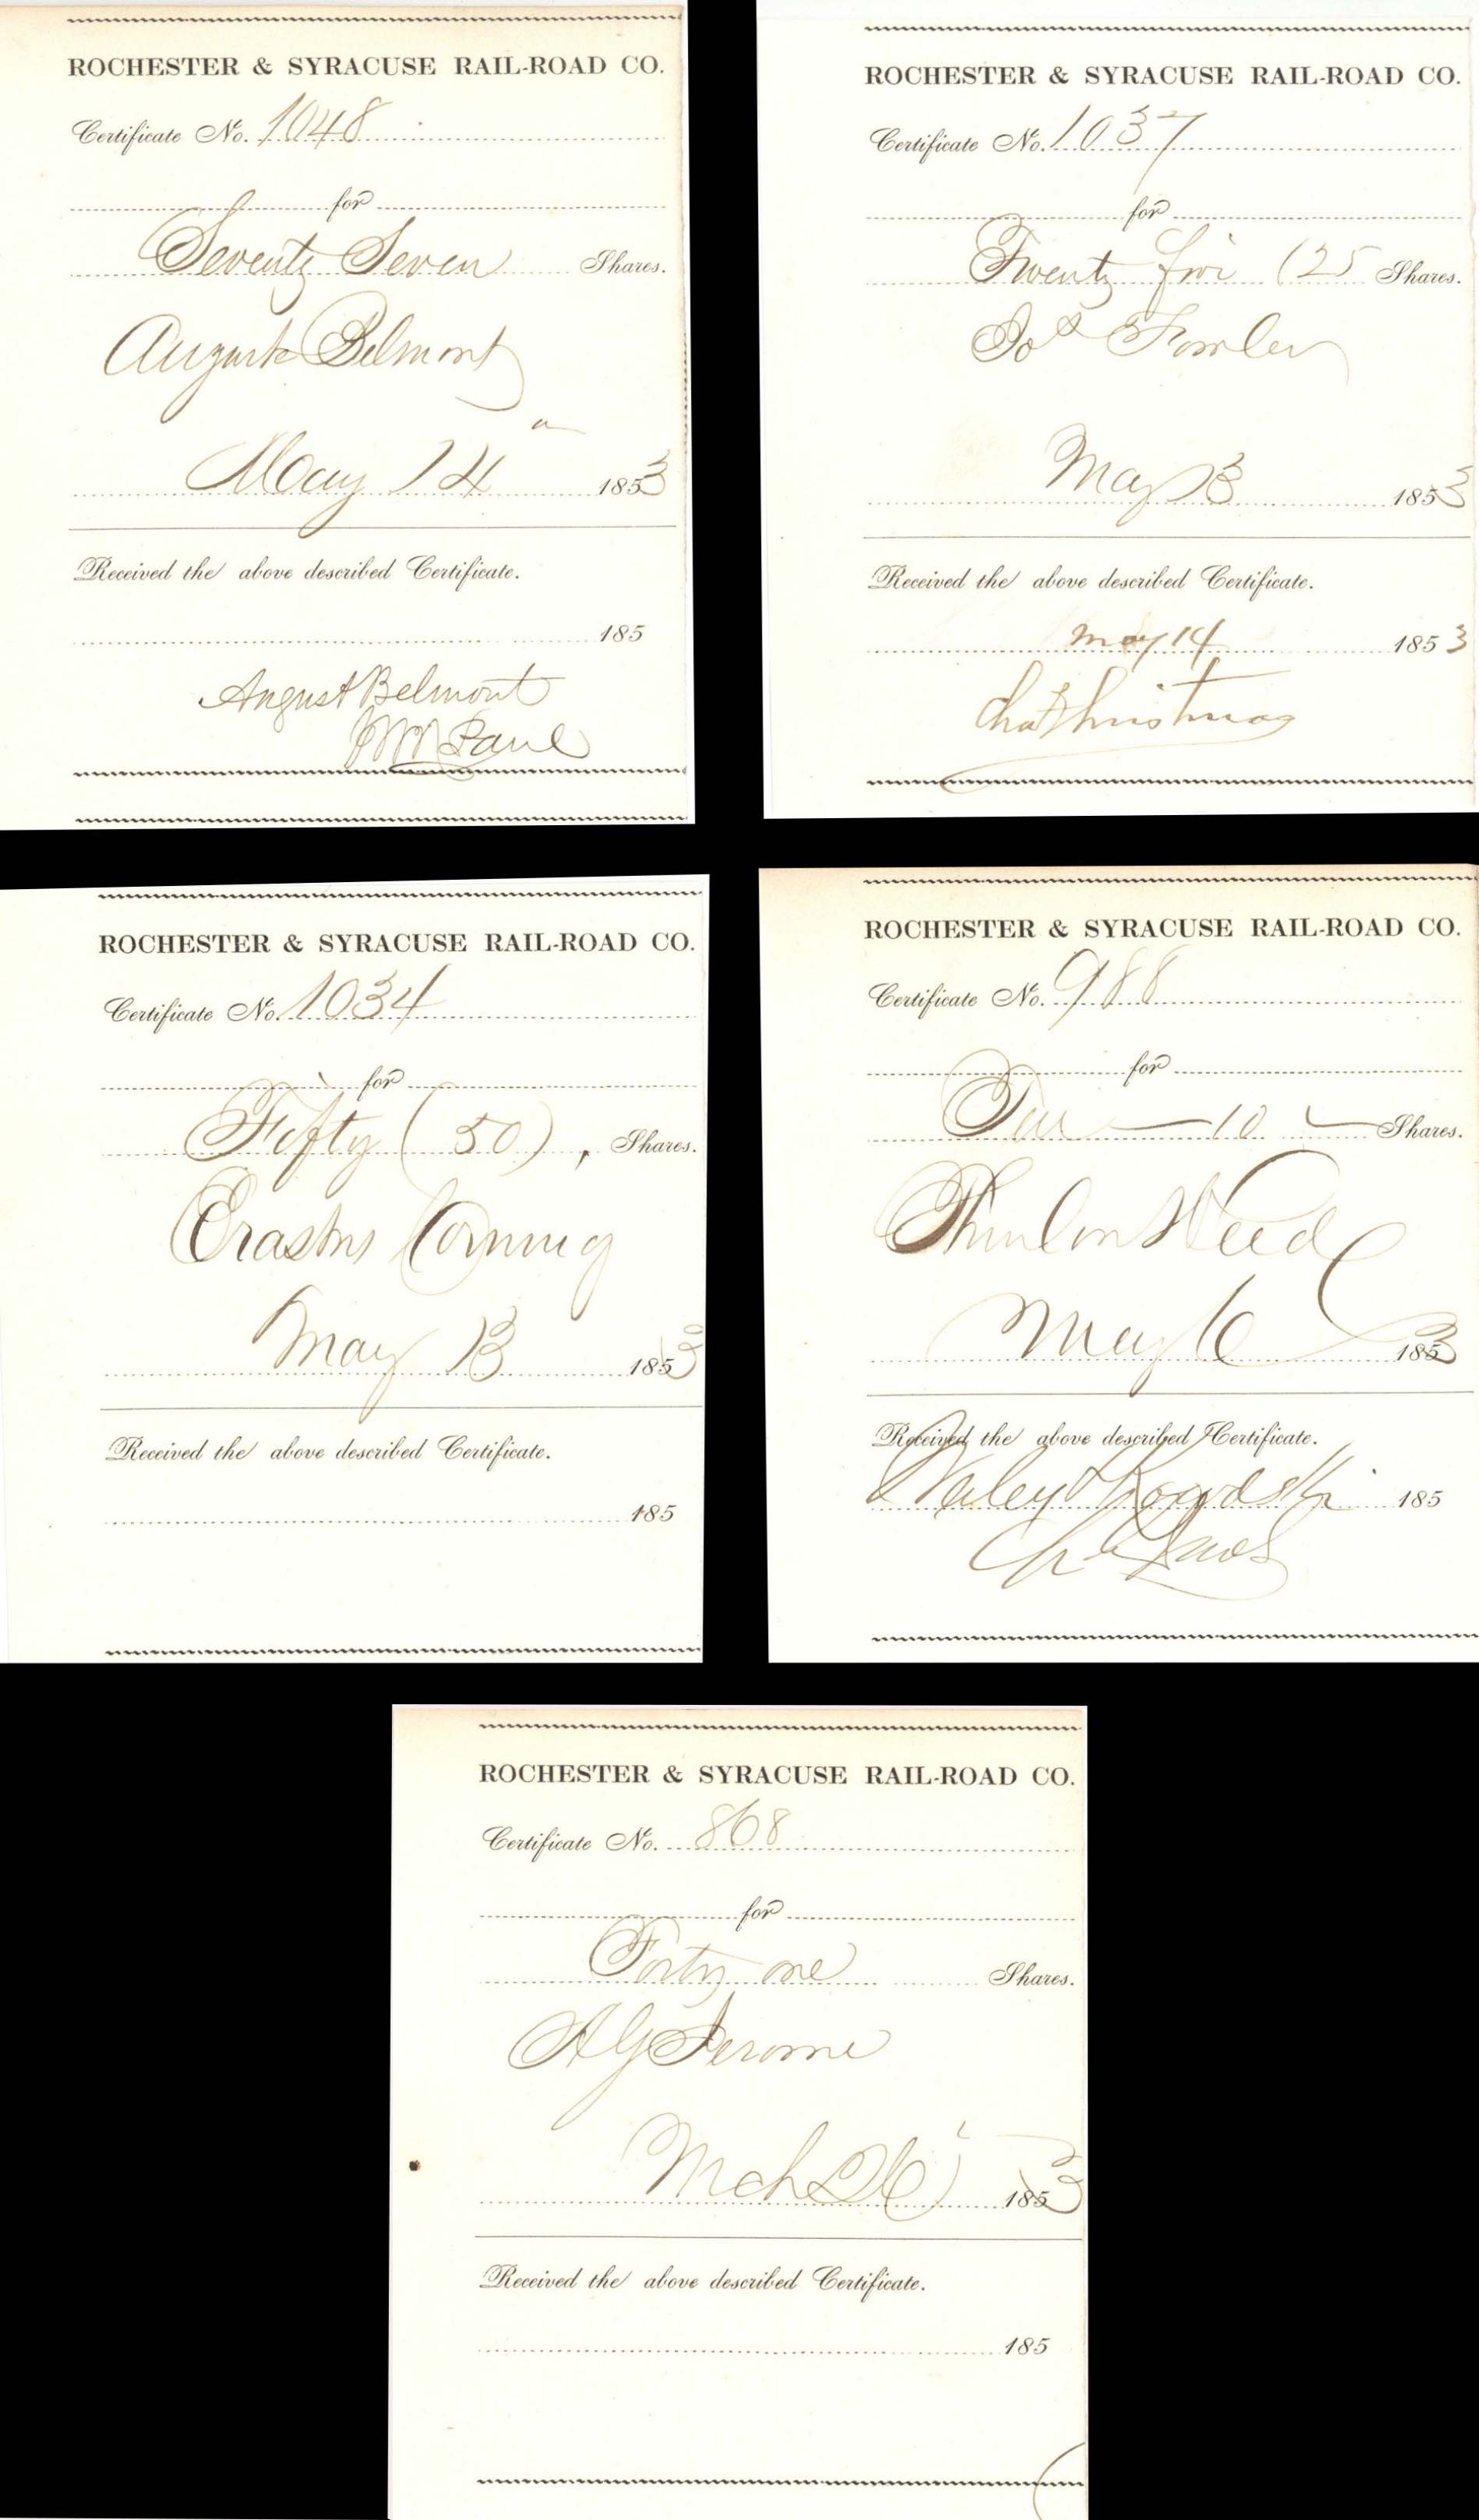 ROCHESTER & SYRACUSE RAIL-ROAD CO.
Certificate No. 1048
for
Seventy Seven Shares.
August Belmont
May 14 1853
Received the above described Certificate.
185
August Belmont
ROCHESTER & SYRACUSE RAIL-ROAD CO.
Certificate No. 1037
for
Twenty five (25 Shares.
Jos Fowler
May 13 1853
Received the above described Certificate.
May 14 1853
Chas Christmas
ROCHESTER & SYRACUSE RAIL-ROAD CO.
Certificate No. 1034
for
Fifty (50), Shares.
Erastus Corning
May 13 1853
Received the above described Certificate.
185
ROCHESTER & SYRACUSE RAIL-ROAD CO.
Certificate No. 988
for
Ten — 10 — Shares.
Thurlow Weed
May 6 1853
Received the above described Certificate.
185
ROCHESTER & SYRACUSE RAIL-ROAD CO.
Certificate No. 868
for
Forty one Shares.
A G Jerome
Mch 26 1853
Received the above described Certificate.
185